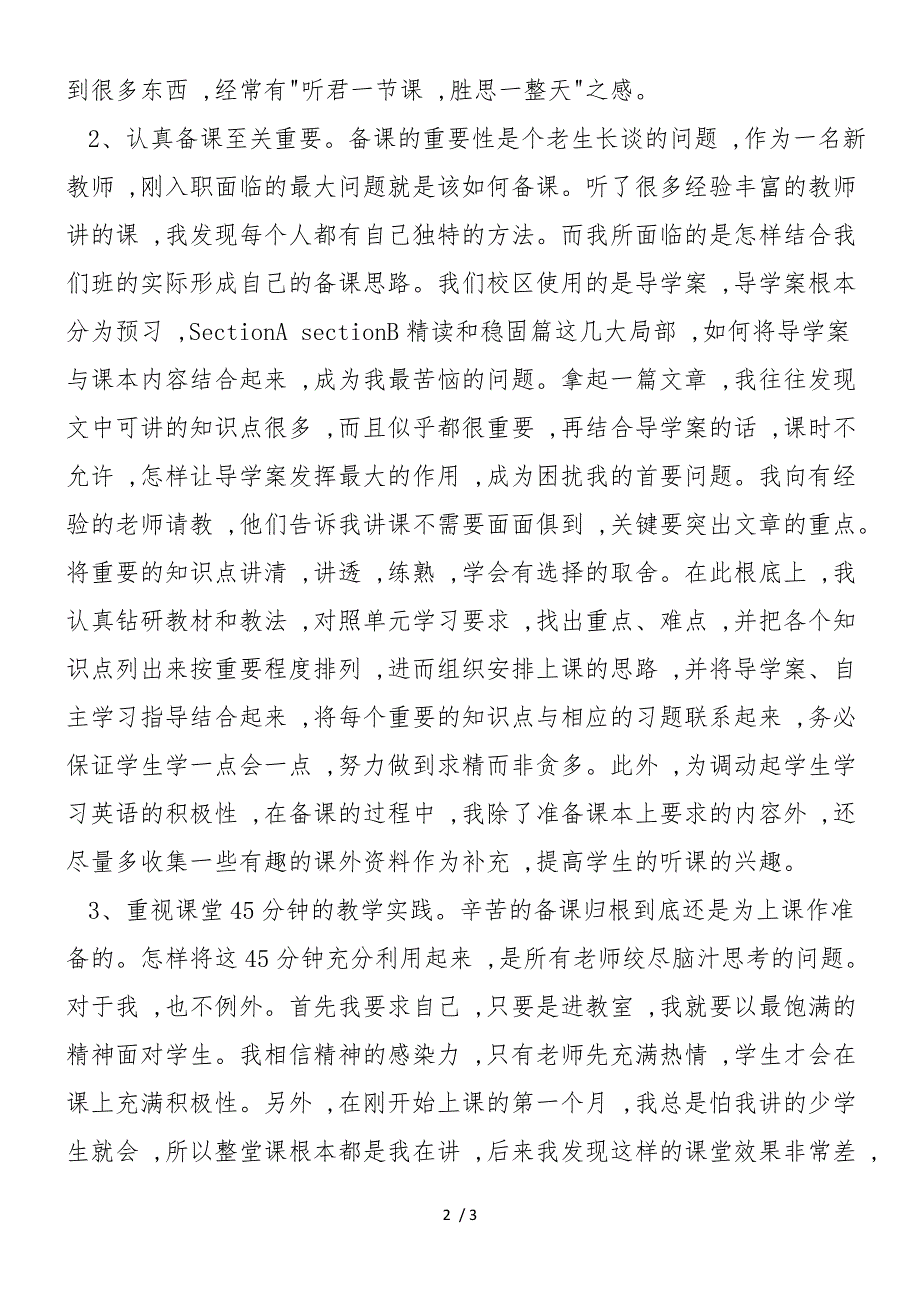 到很多东西 ,经常有"听君一节课 ,胜思一整天"之感。
2、认真备课至关重要。备课的重要性是个老生长谈的问题 ,作为一名新
教师 ,刚入职面临的最大问题就是该如何备课。听了很多经验丰富的教师
讲的课 ,我发现每个人都有自己独特的方法。而我所面临的是怎样结合我
们班的实际形成自己的备课思路。我们校区使用的是导学案 ,导学案根本
分为预习 ,SectionA sectionB精读和稳固篇这几大局部 ,如何将导学案
与课本内容结合起来 ,成为我最苦恼的问题。拿起一篇文章 ,我往往发现
文中可讲的知识点很多 ,而且似乎都很重要 ,再结合导学案的话 ,课时不
允许 ,怎样让导学案发挥最大的作用 ,成为困扰我的首要问题。我向有经
验的老师请教 ,他们告诉我讲课不需要面面俱到 ,关键要突出文章的重点。
将重要的知识点讲清 ,讲透 ,练熟 ,学会有选择的取舍。在此根底上 ,我
认真钻研教材和教法 ,对照单元学习要求 ,找出重点、难点 ,并把各个知
识点列出来按重要程度排列 ,进而组织安排上课的思路 ,并将导学案、自
主学习指导结合起来 ,将每个重要的知识点与相应的习题联系起来 ,务必
保证学生学一点会一点 ,努力做到求精而非贪多。此外 ,为调动起学生学
习英语的积极性 ,在备课的过程中 ,我除了准备课本上要求的内容外 ,还
尽量多收集一些有趣的课外资料作为补充 ,提高学生的听课的兴趣。
3、重视课堂45分钟的教学实践。辛苦的备课归根到底还是为上课作准
备的。怎样将这45分钟充分利用起来 ,是所有老师绞尽脑汁思考的问题。
对于我 ,也不例外。首先我要求自己 ,只要是进教室 ,我就要以最饱满的
精神面对学生。我相信精神的感染力 ,只有老师先充满热情 ,学生才会在
课上充满积极性。另外 ,在刚开始上课的第一个月 ,我总是怕我讲的少学
生就会 ,所以整堂课根本都是我在讲 ,后来我发现这样的课堂效果非常差 ,
2 / 3